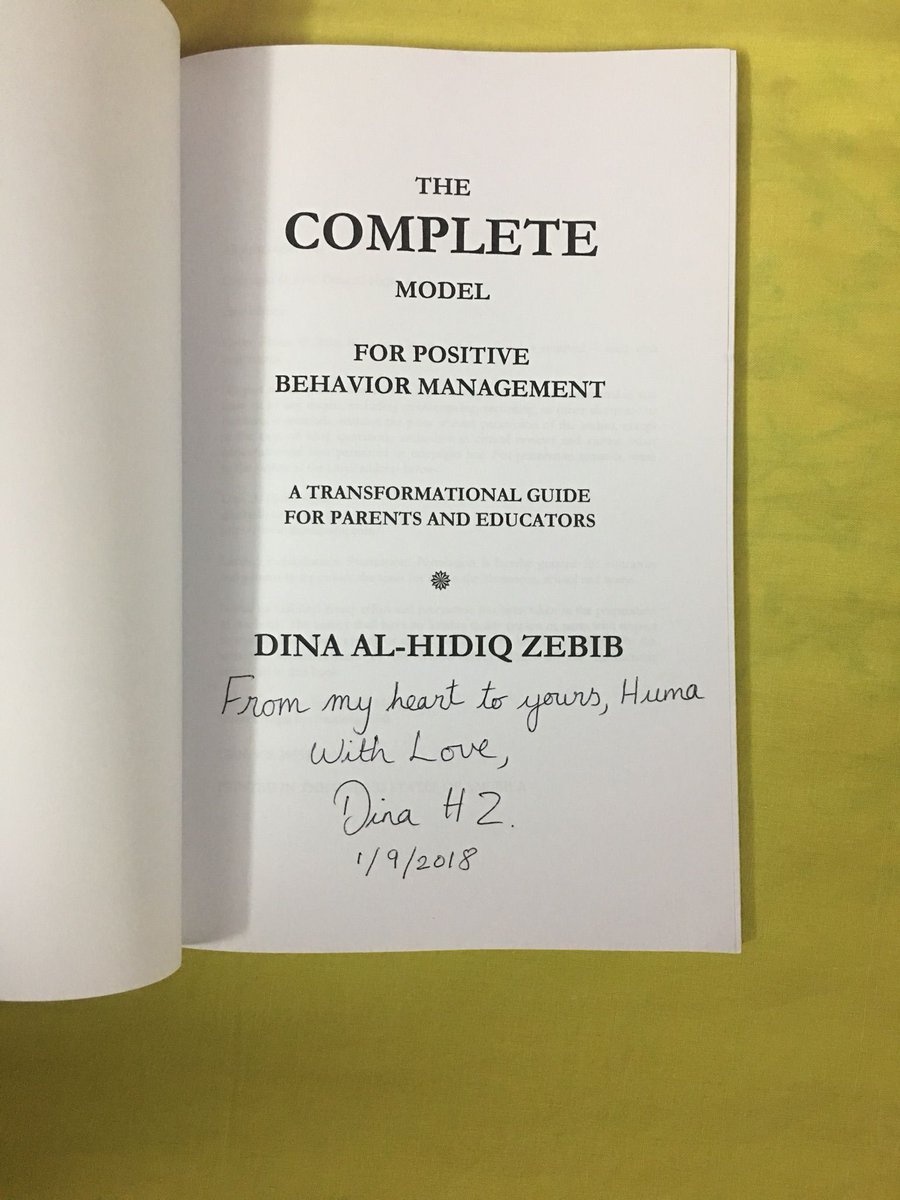 THE
COMPLETE
MODEL
FOR POSITIVE
BEHAVIOR MANAGEMENT
A TRANSFORMATIONAL GUIDE
FOR PARENTS AND EDUCATORS
DINA AL-HIDIQ ZEBIB
From my heart to yours, Huma
With Love,
Dina H Z.
1/9/2018